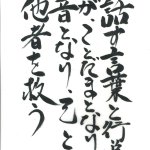 話す言葉と行い
が、こだまとなり
音となり、己と
他者を救う